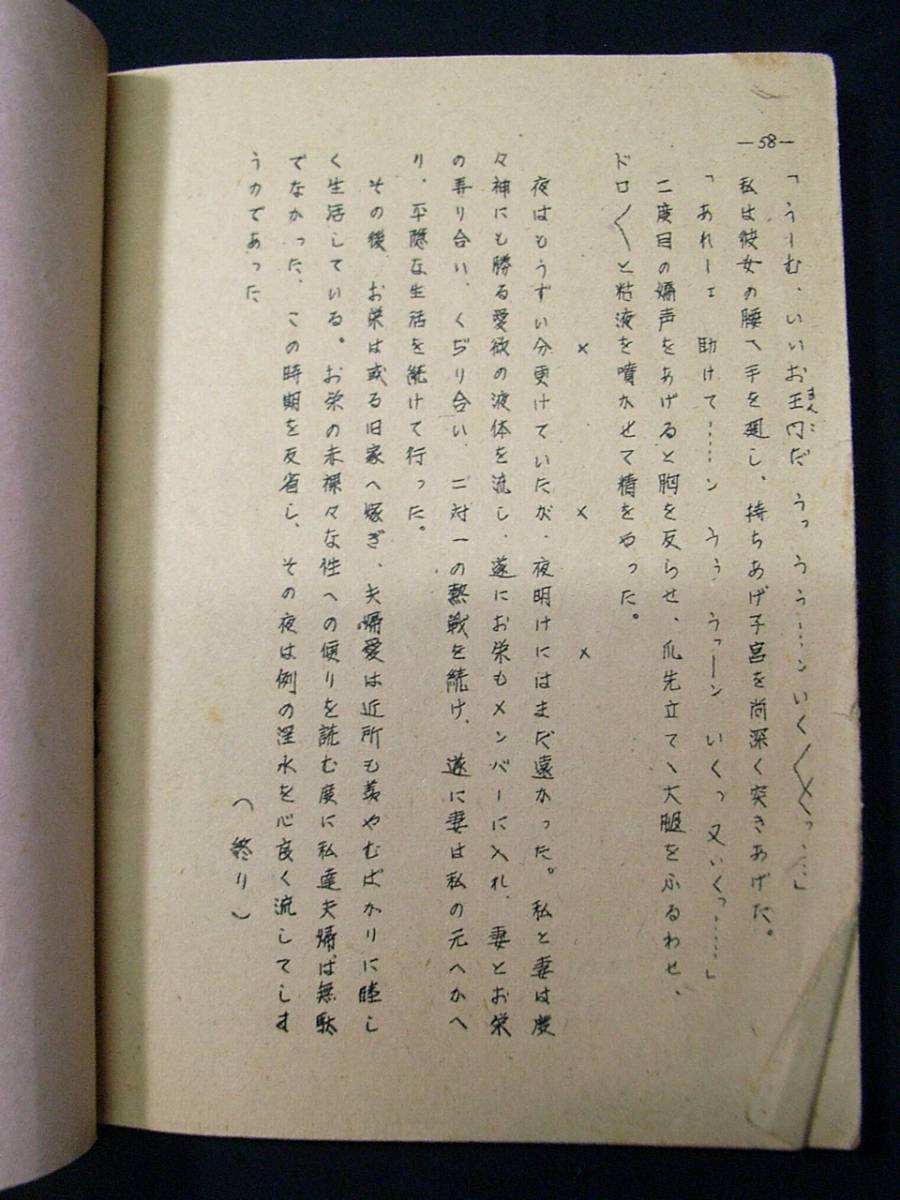 —58—
「うーむ、いいお王冂だ　うっ　うう……ン　いく〱〱っ……」
まんこ
私は彼女の腰へ手を廻し、持ちあげ子宮を尚深く突きあげた。
「あれーエ　助けて……ン　うぅ　うっーン　いくっ　又いくっ……」
二度目の嬌声をあげると胸を反らせ、爪先立てヽ大腿をふるわせ、
ドロ〱と粘液を噴かせて精をやった。
×　×　×
夜はもうずい分更けていたが、夜明けにはまだ遠かった。私と妻は度
々神にも勝る愛欲の液体を流し、遂にお栄もメンバーに入れ、妻とお栄
の弄り合い、くぢり合い、二対一の熱戦を続け、遂に妻は私の元へかへ
り、平隠な生活を続けて行った。
その後、お栄は或る旧家へ嫁ぎ、夫婦愛は近所も羨やむばかりに睦し
く生活している。お栄の赤裸々な性への便りを読む度に私達夫婦は無駄
でなかった、この時期を反省し、その夜は例の淫水を心良く流してしま
うのであった
（終り）